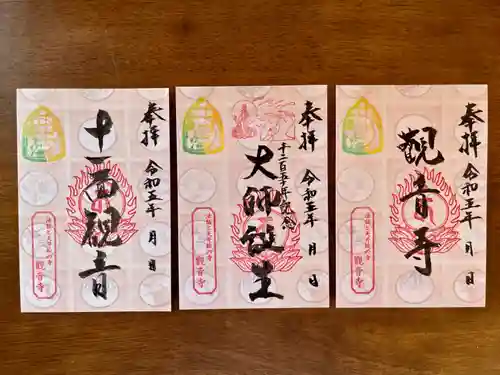 奉拝
令和五年 月 日
十一面観音
観音寺
奉拝
令和五年 月 日
千二百五十年記念
大師誕生
観音寺
奉拝
令和五年 月 日
観音寺
観音寺